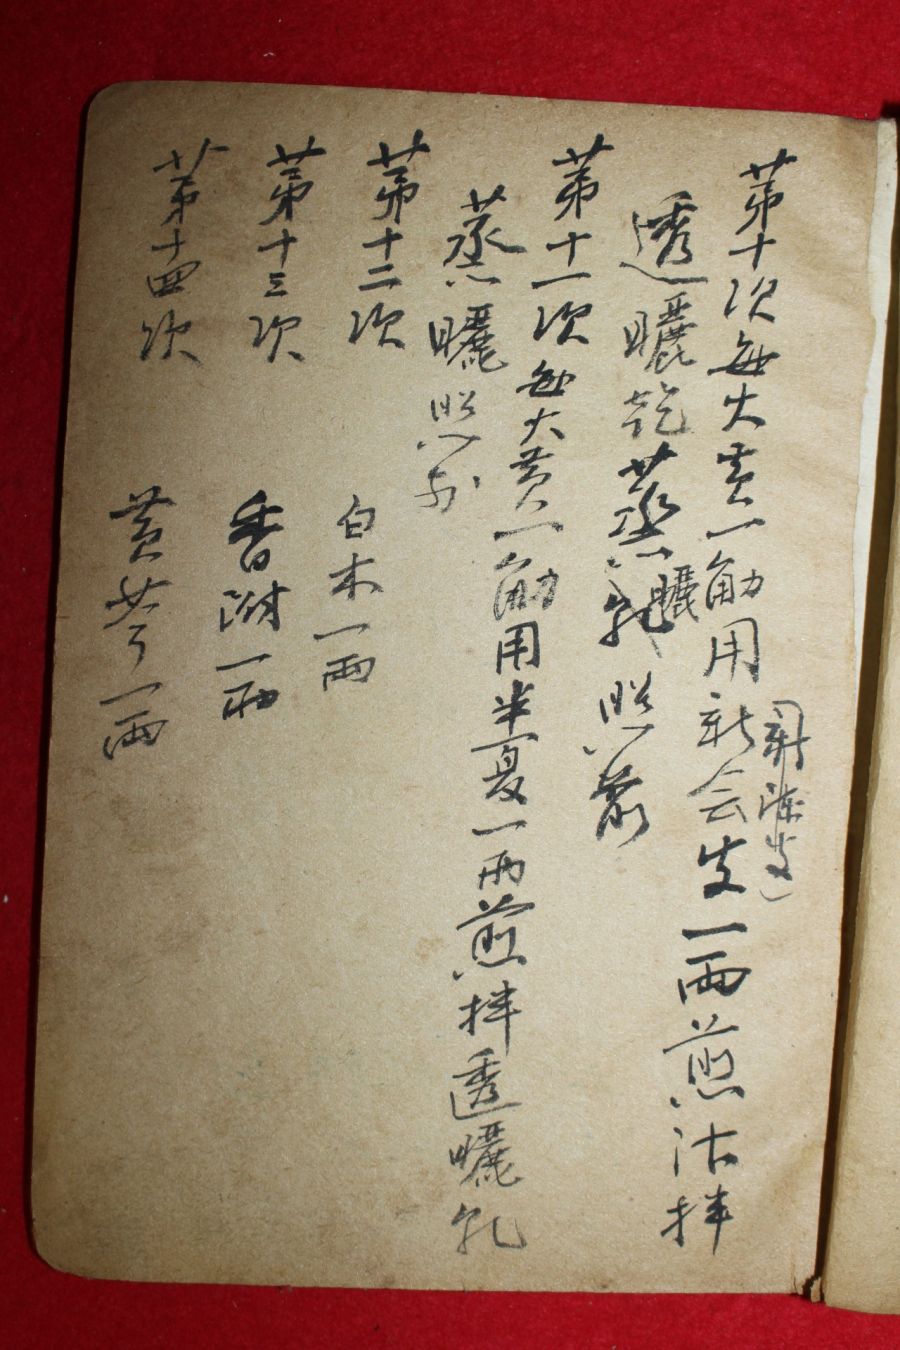 第十次每大黄一觔用新会皮一两煎汁拌
透曬乾蒸曬照前
第十一次每大黄一觔用半夏一两煎拌透曬乾
蒸曬照前
第十二次 白术一两
第十三次 香附一两
第十四次 黄芩一两